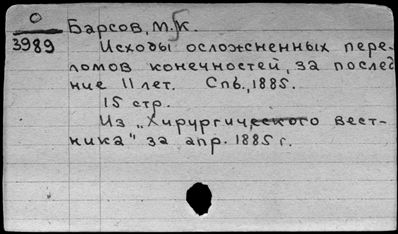 О
3989
Барсов, М.К.
Исходы осложненных пере-
ломов конечностей, за послед
ние 11 лет. Спб., 1885.
15 стр.
Из „Хирургического вест-
ника" за апр. 1885 г.